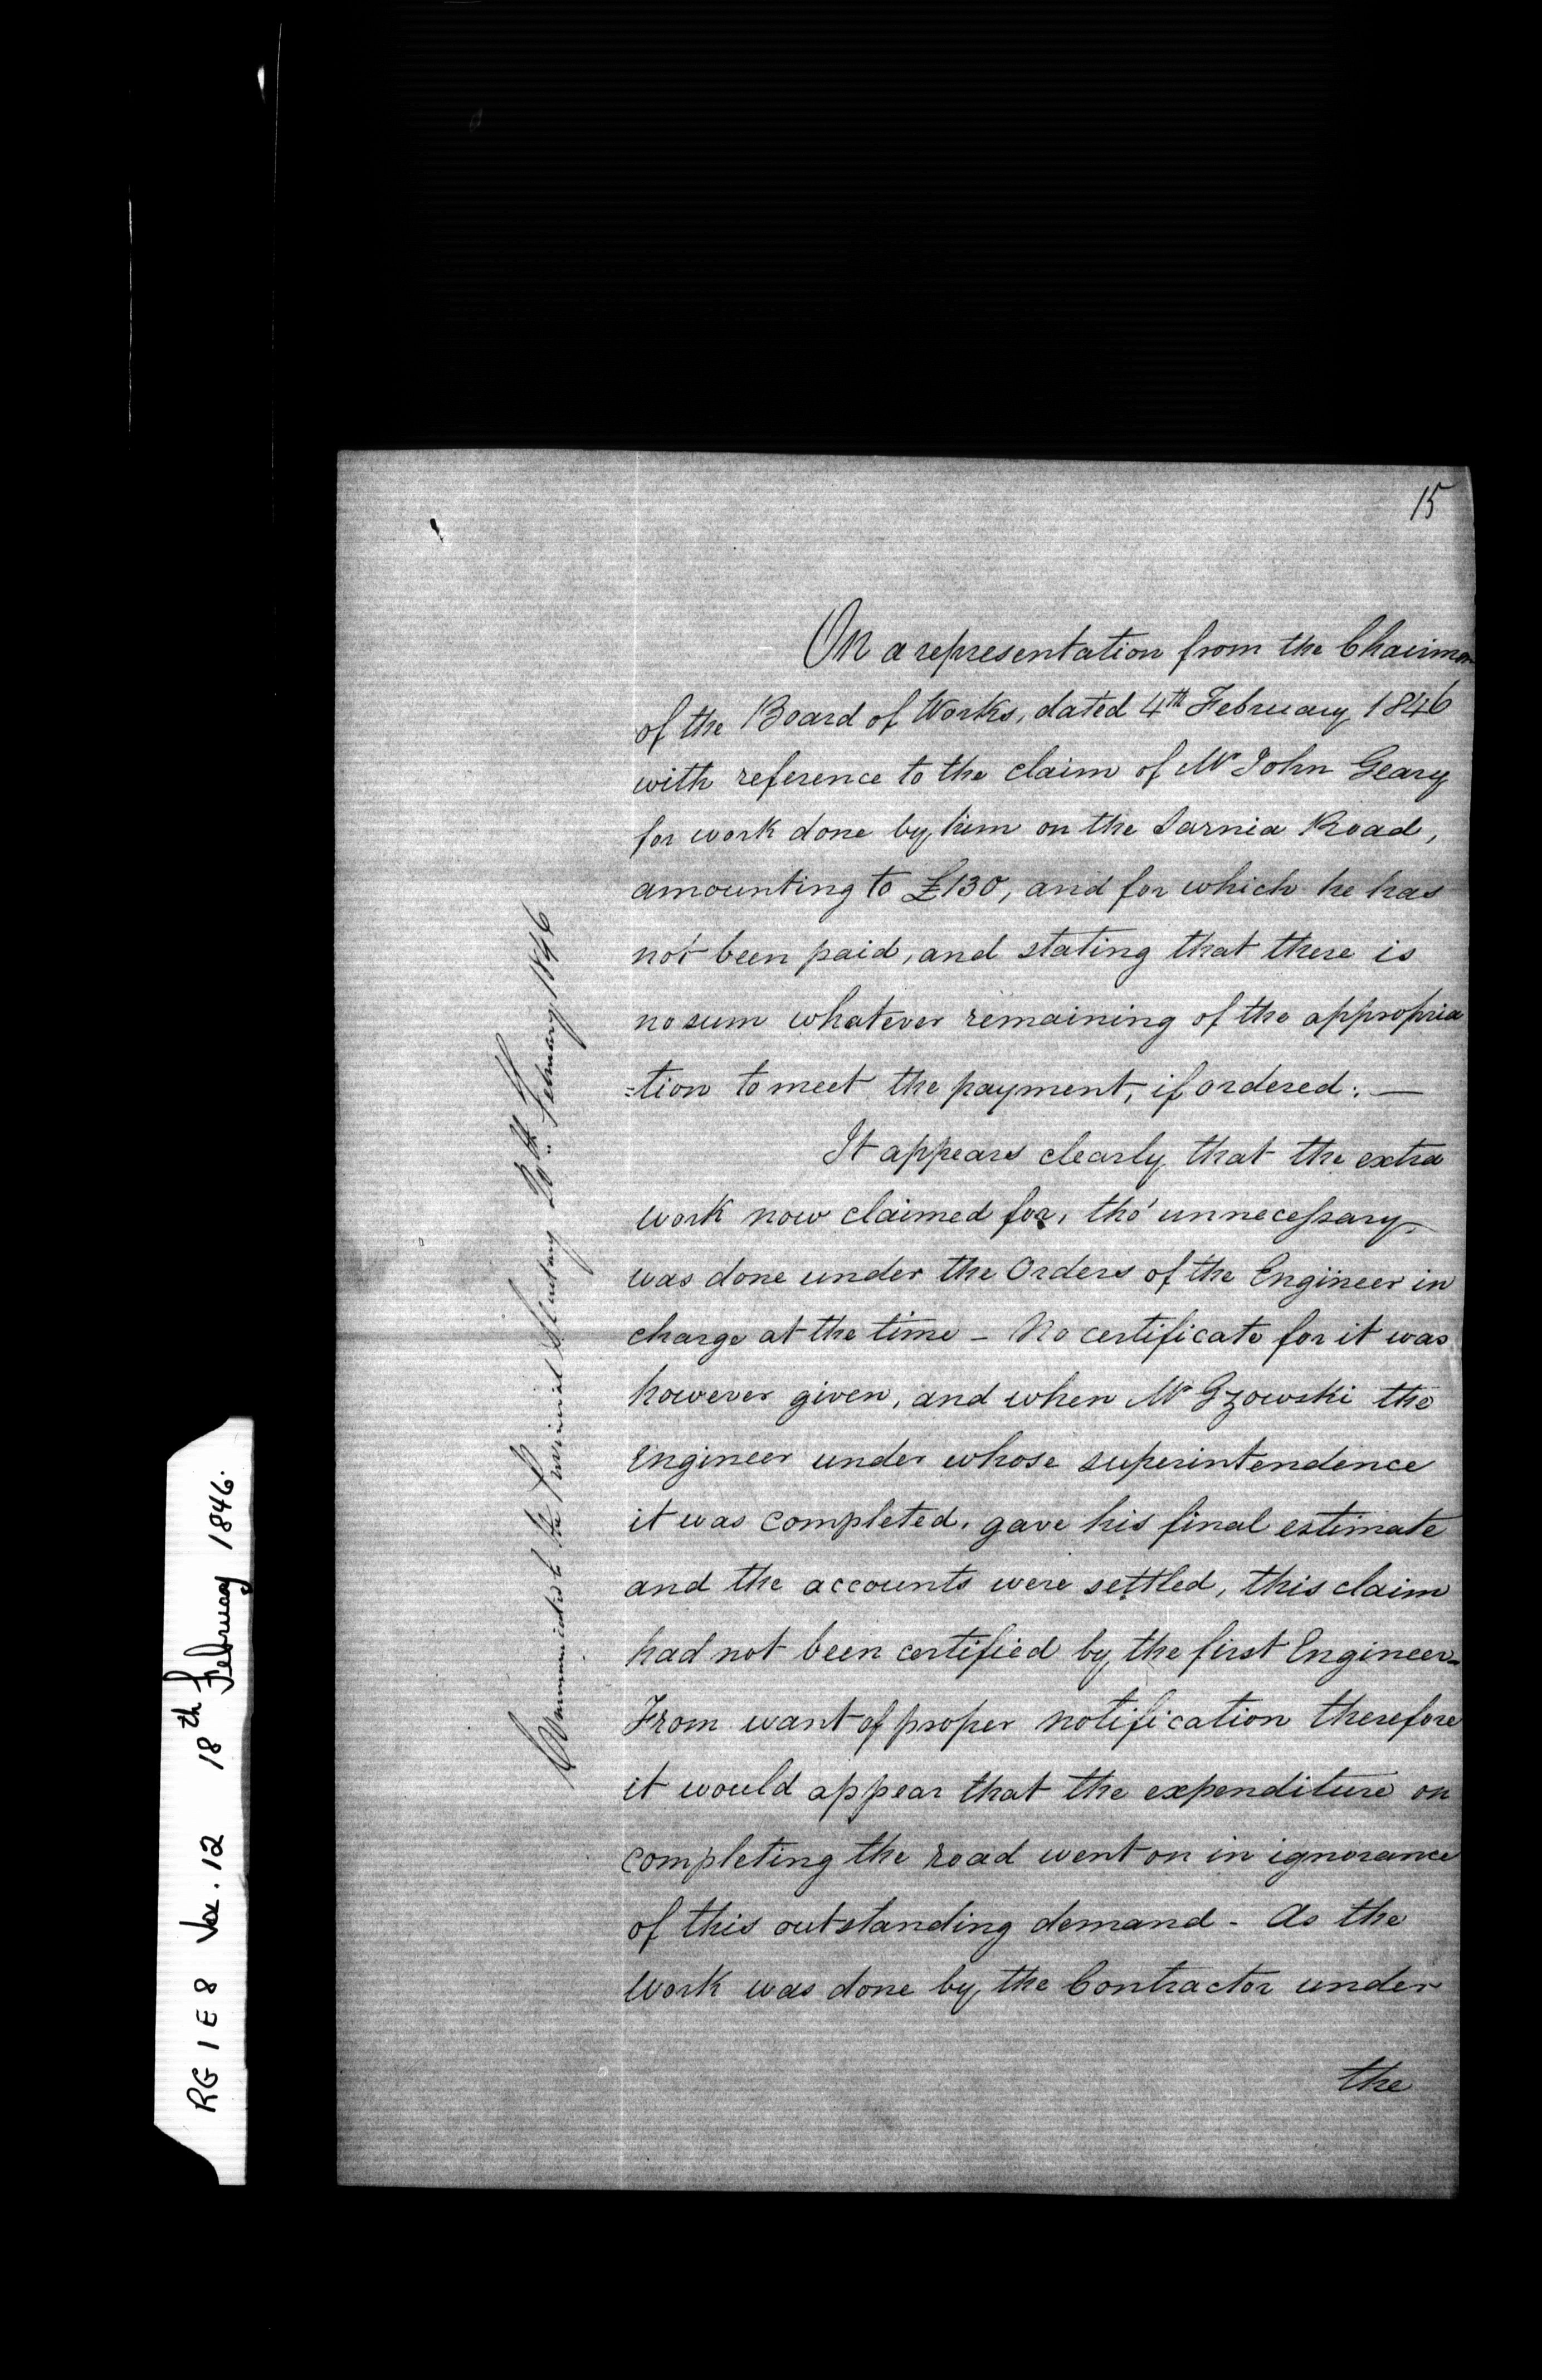 15
On a representation from the Chairman
of the Board of Works, dated 4th February 1846
with reference to the claim of Mr John Geary
for work done by him on the Sarnia Road,
amounting to £130, and for which he has
not been paid, and stating that there is
no sum whatever remaining of the appropria
=tion to meet the payment, if ordered: —
It appears clearly that the extra
work now claimed for, tho' unnecessary,
was done under the Orders of the Engineer in
charge at the time - No certificate for it was
however given, and when Mr Gzowski the
Engineer under whose superintendence
it was completed, gave his final estimate
and the accounts were settled, this claim
had not been certified by the first Engineer-
From want of proper notification therefore
it would appear that the expenditure on
completing the road went on in ignorance
of this outstanding demand - As the
work was done by the Contractor under
the
Communicated to the Provincial Secretary 20th February 1846
RG 1 E 8 Vol. 12 18th February 1846.